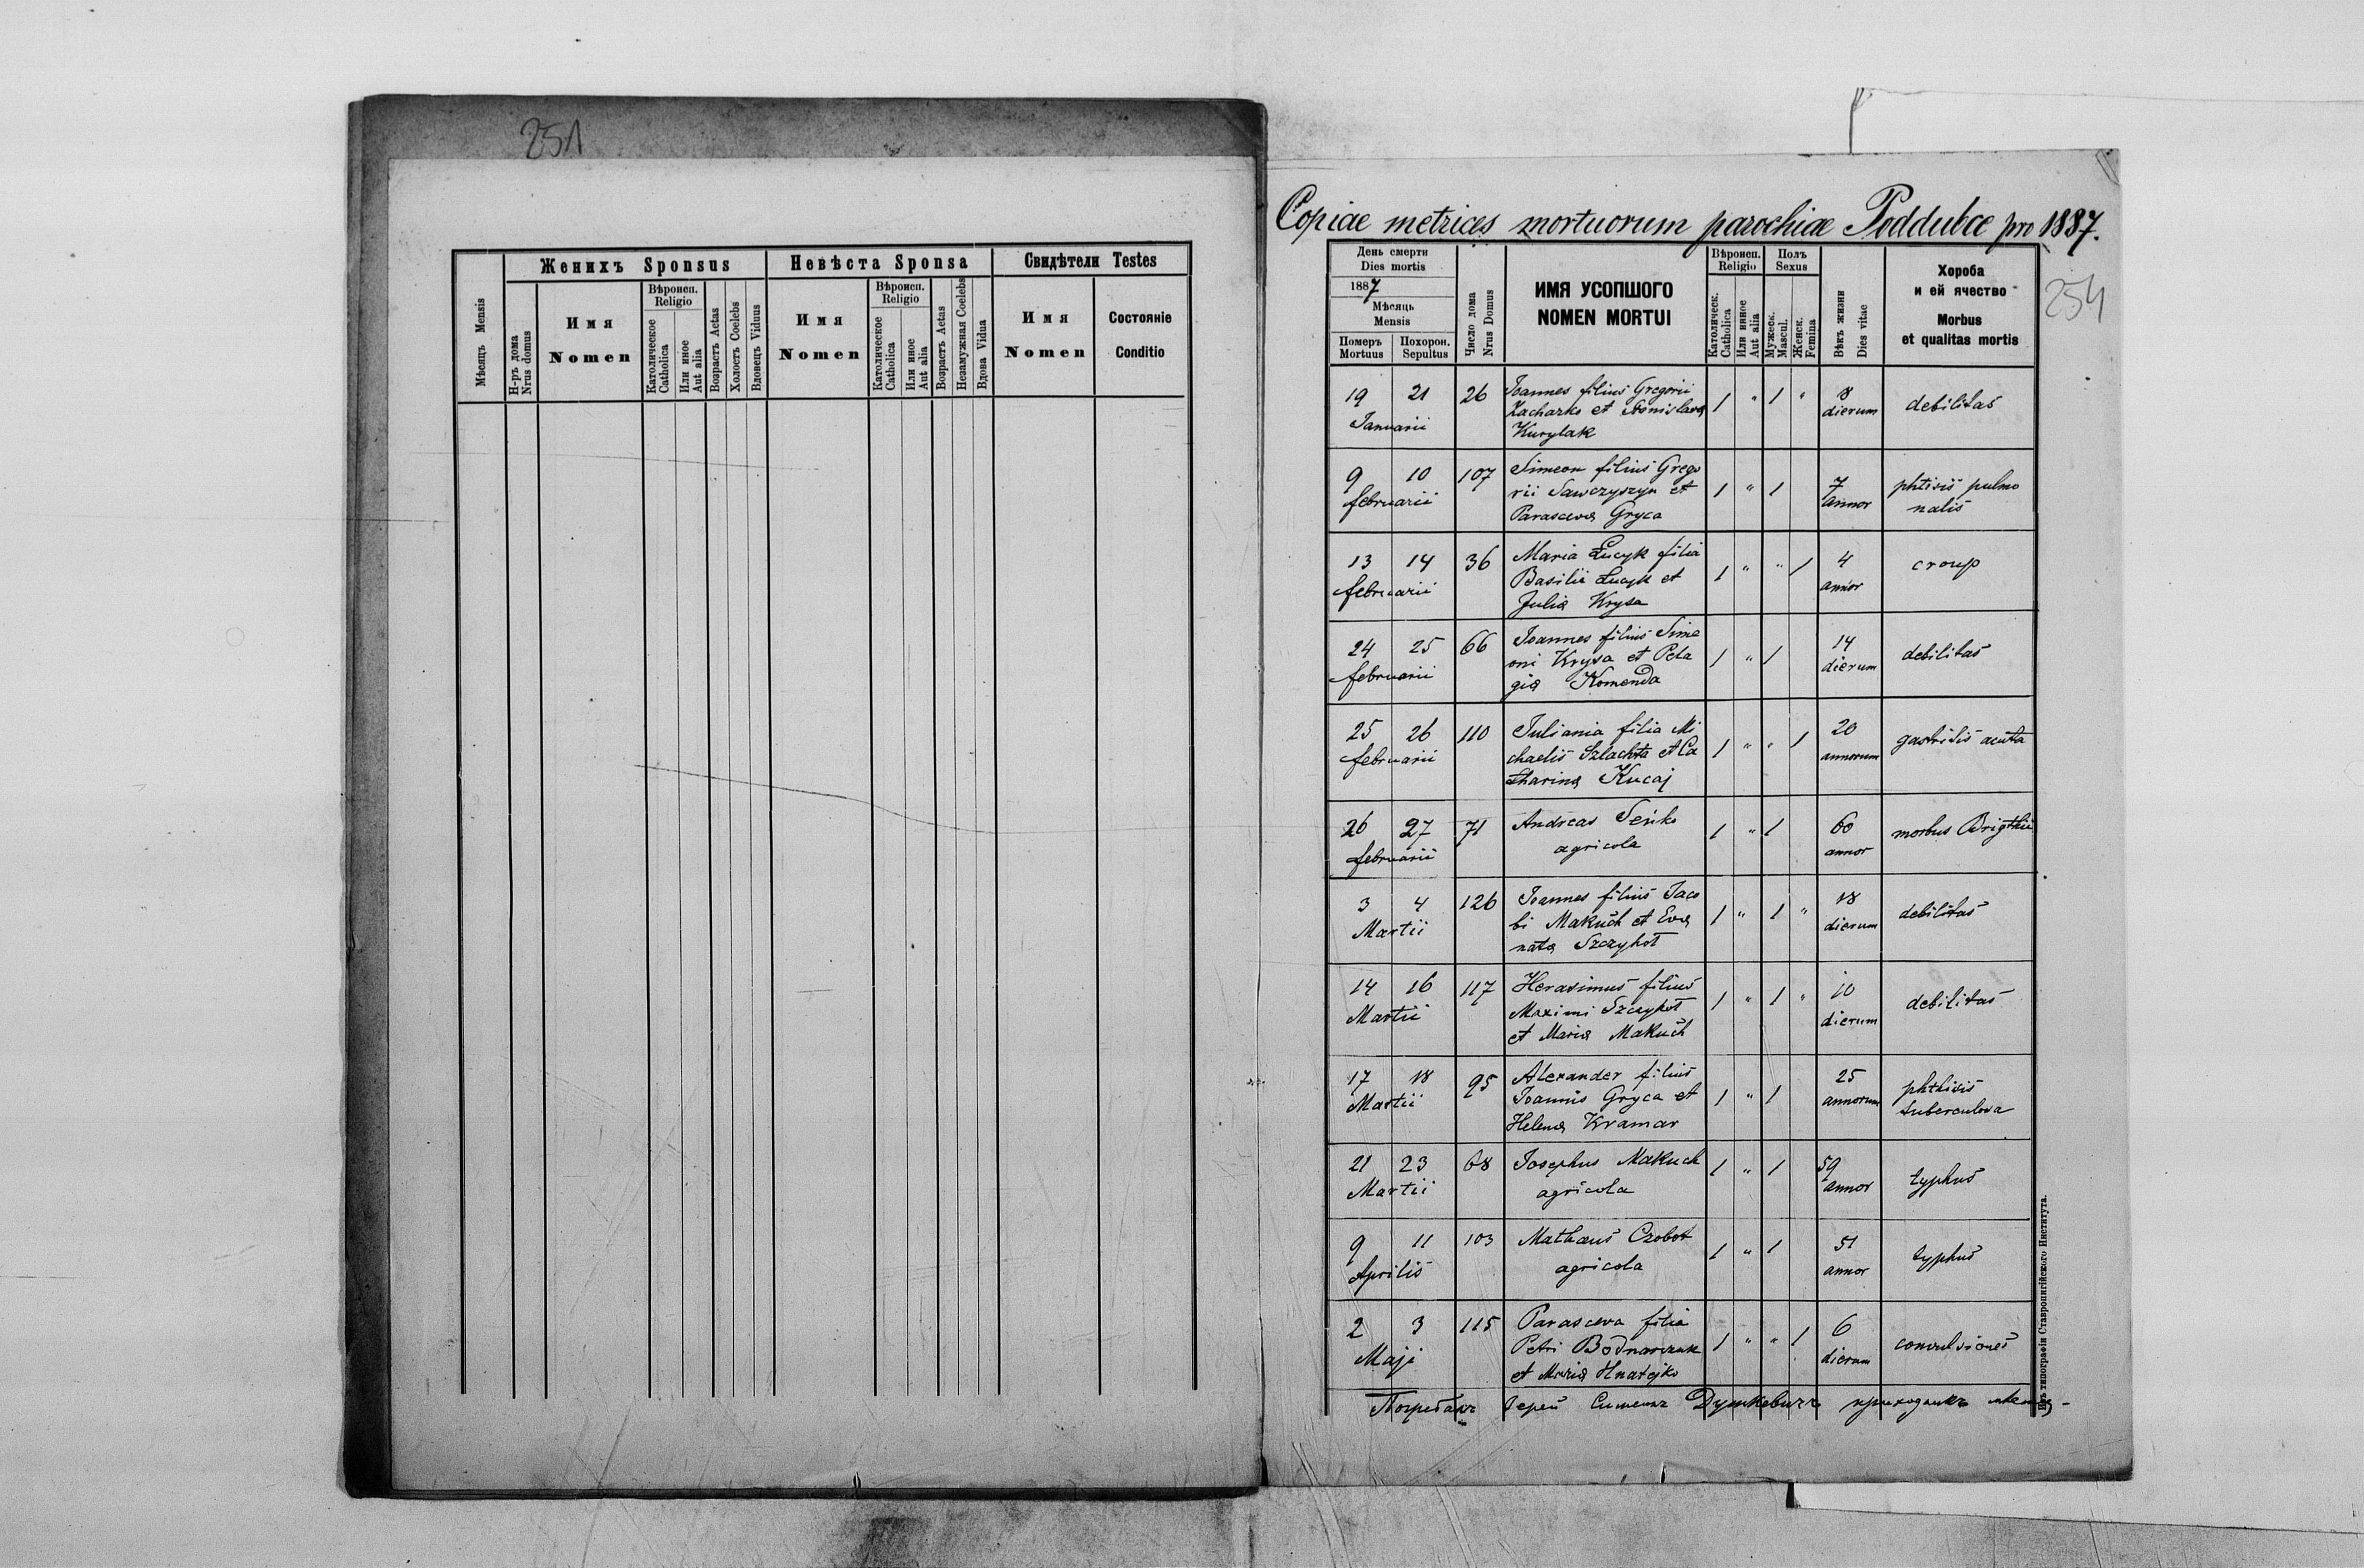 251
Женихъ Sponsus
Невѣста Sponsa
Свидѣтели Testes
Мѣсяцъ Mensis
Н-ръ дома
Nrus domus
Имя
Nomen
Вѣроисп.
Religio
Католическое
Catholica
Или иное
Aut alia
Возрастъ Aetas
Холостъ Coelebs
Вдовецъ Viduus
Имя
Nomen
Вѣроисп.
Religio
Католическое
Catholica
Или иное
Aut alia
Возрастъ Aetas
Незамужная Coelebs
Вдова Vidua
Имя
Nomen
Состояніе
Conditio
Copiae metrices mortuorum parochiae Poddubce pro 1887.
254
День смерти
Dies mortis
1887
Мѣсяцъ
Mensis
Померъ
Mortuus
Похорон.
Sepultus
Число дома
Nrus Domus
ИМЯ УСОПШОГО
NOMEN MORTUI
Вѣроисп.
Religio
Католическ.
Catholica
Или инное
Aut alia
Полъ
Sexus
Мужеск.
Mascul.
Женск.
Femina
Вѣкъ жизни
Dies vitae
Хороба
и ей ячество
Morbus
et qualitas mortis
19 21 26 Joannes filius Gregorii 1 " 1 " 8
Januarii Zacharko et dierum debilitas
Kurylak
9 10 107 Simeon filius Grego 1 " 1 7 phtisis pulmo
februarii rii Sawczyszyn et annor nalis
Parasceva Gryca
13 14 36 Maria Łucyk filia 1 " " 1 4 croup
februarii Basilii Łucyk et annor
Julia Krysa
24 25 66 Joannes filius Sime 1 " 1 14 debilitas
februarii oni Krysa et Pela dierum
gia Komenda
25 26 110 Juliania filia Mi 1 " " 1 20 gastritis acuta
februarii chaelis Szlachta et Ca annorum
tharina Kucaj
26 27 71 Andreas 1 " 1 60 morbus Brigthii
februarii agricola annor
3 4 126 Joannes filius Jaco 1 " 1 " 18 debilitas
Martii bi Makuch et Eva dierum
nata Szczyhot
14 16 117 Herasimus filius 1 " 1 " 10 debilitas
Martii Maximi Szczyhot dierum
et Maria Makuch
17 18 95 Alexander filius 1 " 1 25 phthisis
Martii Joannis Gryca et annorum tuberculosa
Helena Kramar
21 23 68 Josephus Makuch 1 " 1 59 typhus
Martii agricola annor
9 11 103 Mathaus Czobot 1 " 1 51 typhus
Aprilis agricola annor
2 3 115 Parasceva filia 1 " " 1 6 convulsiones
Maji Petri Bodnarczuk dierum
et Maria Hnatejko
Погребалъ Іерей Симеонъ приходникъ
Въ типографіи Ставропигійского Института.